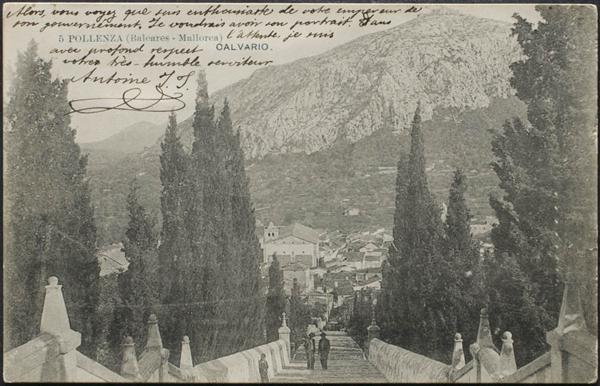 Alors, vous voyez que suis enthousiaste de votre empereur de
son gouvernement. Je voudrais avoir son portrait. Dans
5 POLLENZA (Baleares - Mallorca)
l'attente, je suis
avec profond respect
CALVARIO.
votre très-humble serviteur
Antoine J. S.